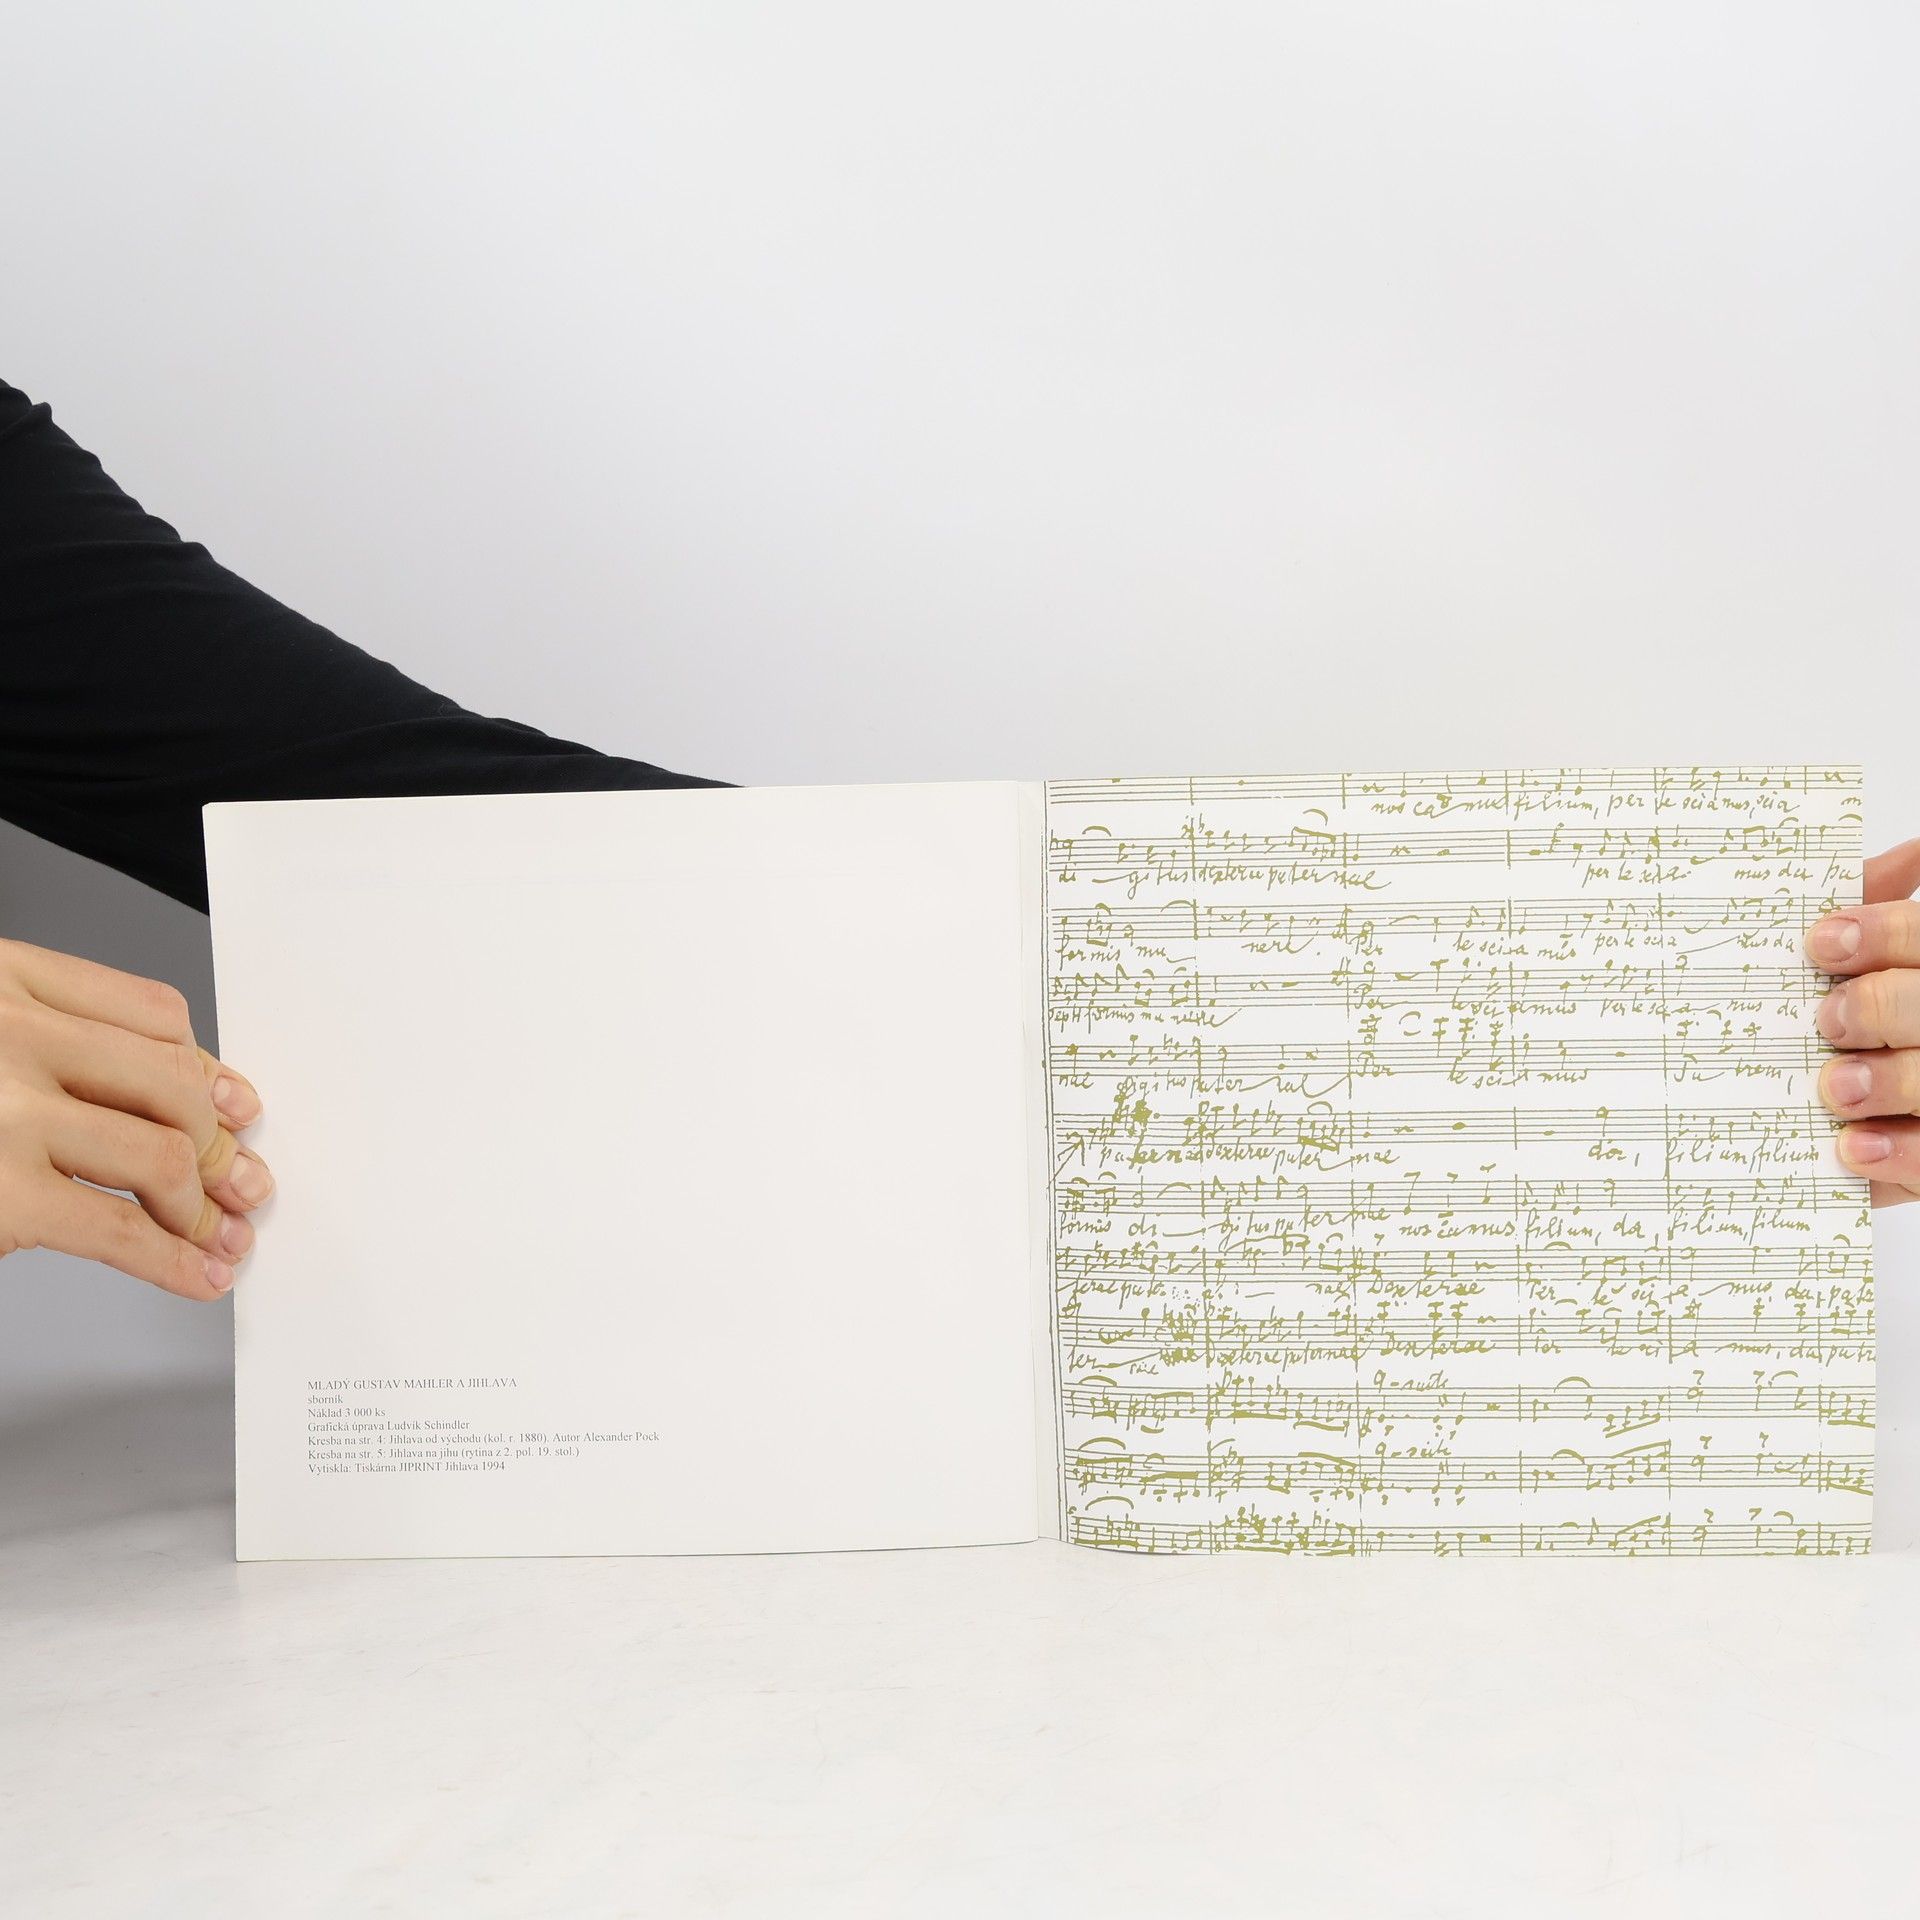 MLADÝ GUSTAV MAHLER A JIHLAVA
sborník
Náklad 3 000 ks
Grafická úprava Ludvík Schindler
Kresba na str. 4: Jihlava od východu (kol. r. 1880). Autor Alexander Pock
Kresba na str. 5: Jihlava na jihu (rytina z 2. pol. 19. stol.)
Vytiskla: Tiskárna JIPRINT Jihlava 1994
filium, per te sciamus, scia
di gitus dexterae paternae per te mus da pa
formis mu nere. Per te scia mus per te scia mus da
septiformis munere Per te sci amus per te scia mus da
nae digitus pater Per te sci mus Pa trem,
dexterae pater nae filium, filium
formis di gitus pa ter nae noscamus filium, da, filium, filium
nae Dexterae Per te sci a mus da, patr
ter Dexterae paternae Dexterae Per te sci a mus, da, patr